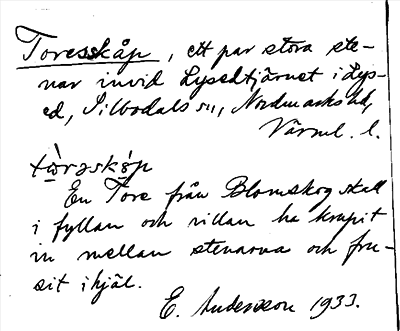 Toresskåp, ett par stora ste-
nar invid Lysedtjärnet i Lys-
ed, Silbodals sn, Nordmarks hd,
Värml. l.
tὼrəskåp
En Tore från Blomskog skall
i fyllan och villan ha krupit
in mellan stenarna och fru-
sit ihjäl.
E. Andersson 1933.